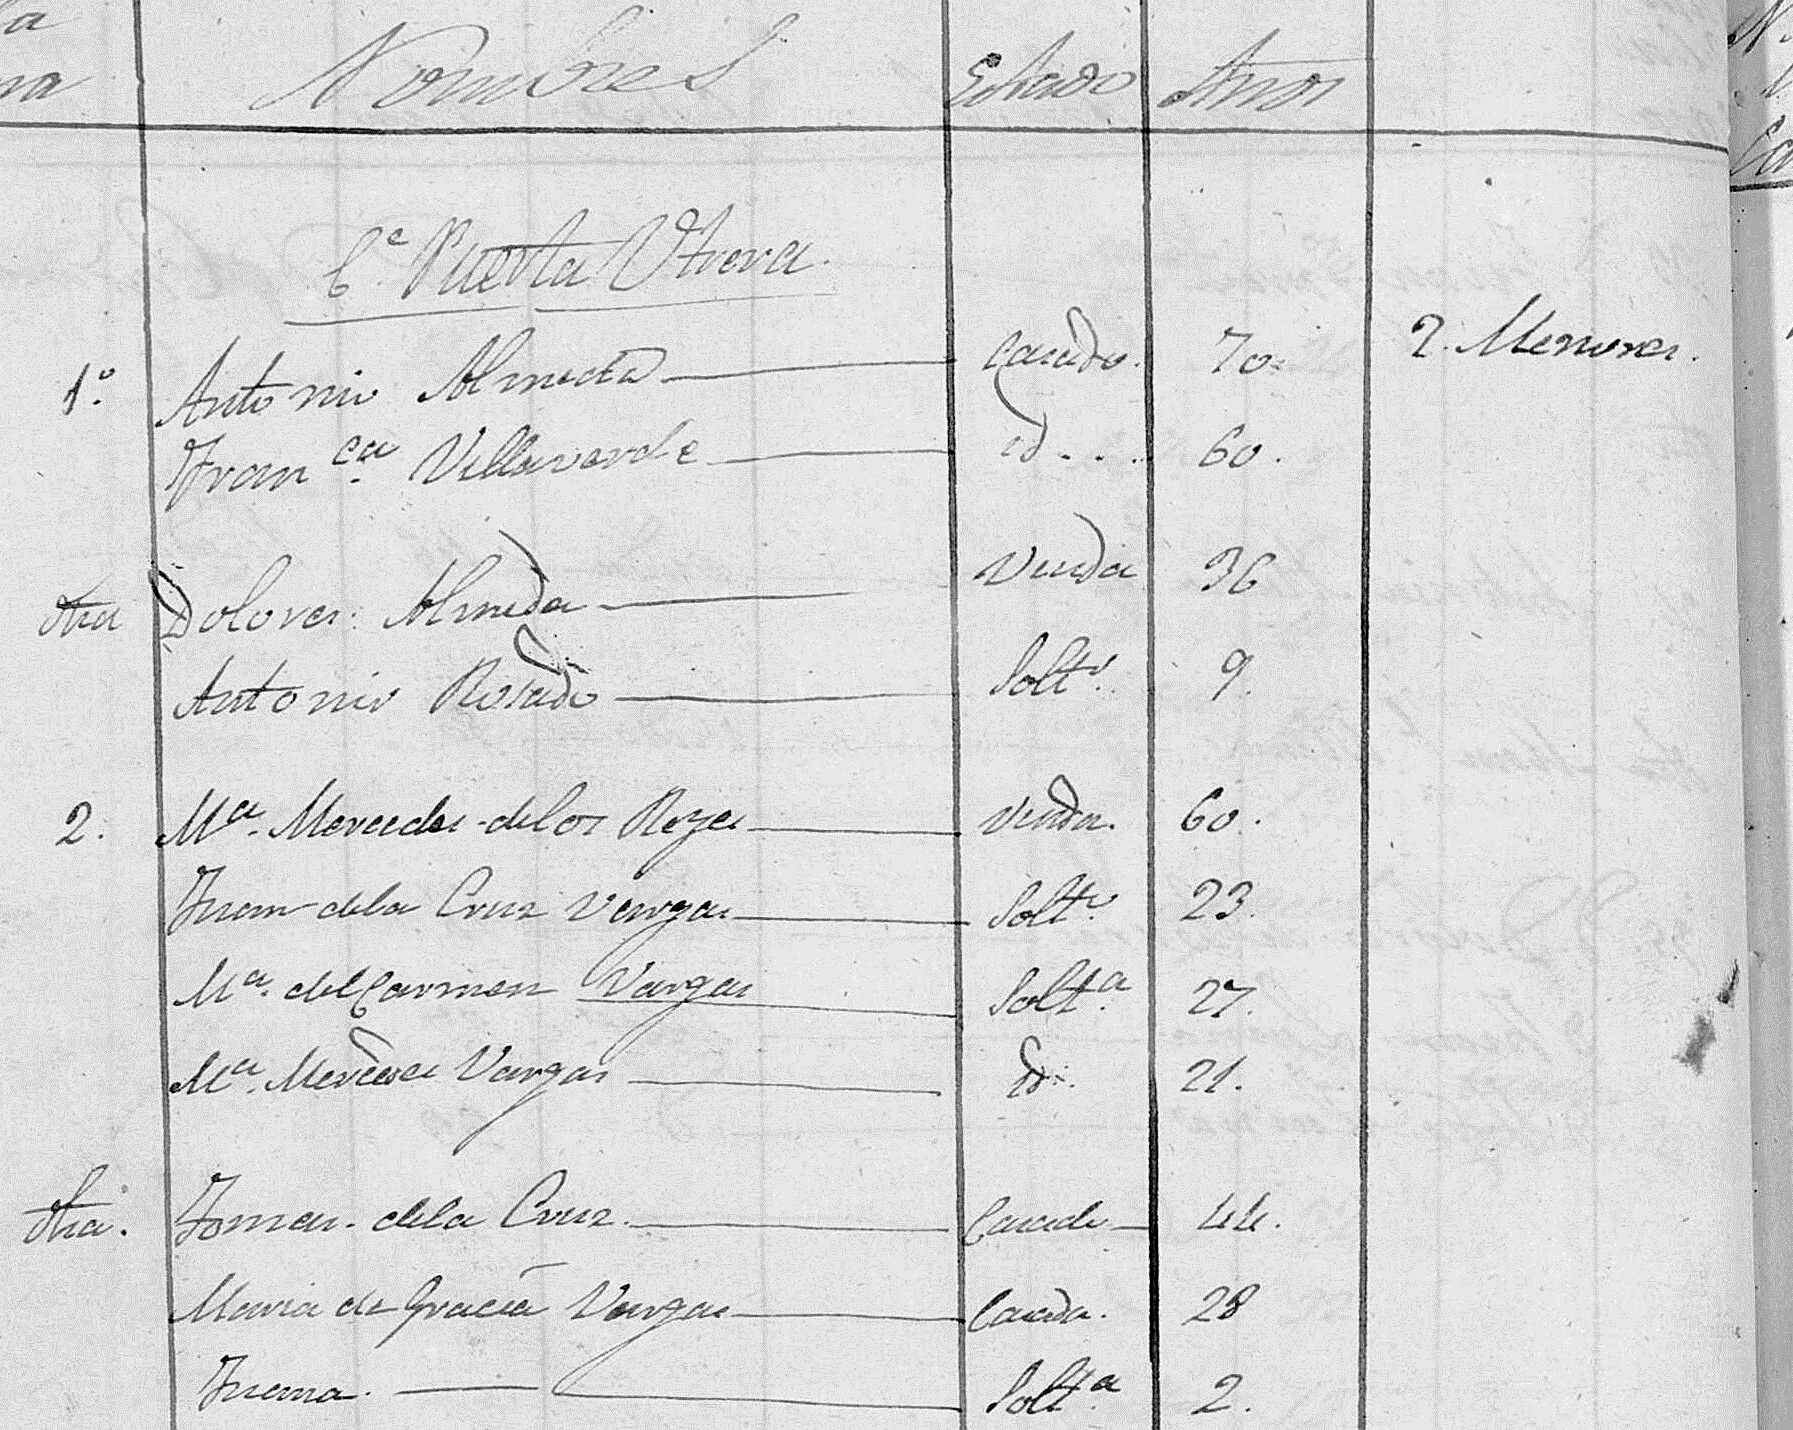 Nombres Estado Años
C.e Puerta Utrera.
1.o Antonio Almeda Casado. 70. 2. Menores.
Fran.ca Villaverde id... 60.
otra Dolores Almeda Viuda 36
Antonio Rosado Solt.o 9.
2. M.a Mercedes de los Reyes Viuda. 60.
Juan de la Cruz Vargas Solt.o 23.
M.a del Carmen Vargas Solt.a 27.
M.a Mercedes Vargas id. 21.
otra. Tomas de la Cruz. Casado 44.
Maria de Gracia Vargas Casada. 28
Juana. Solt.a 2.